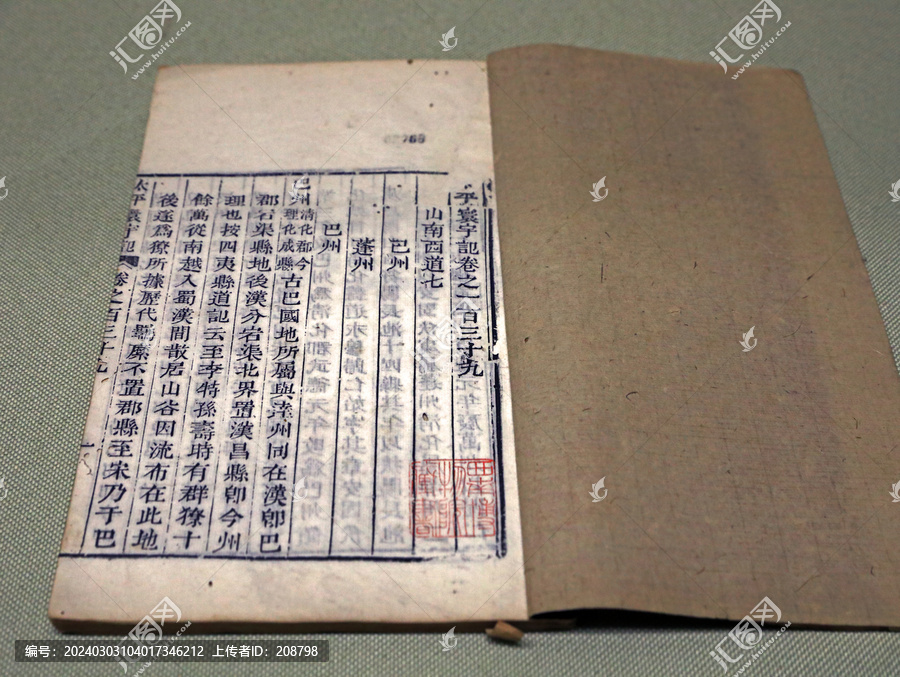 太平寰宇記卷之一百三十九
山南西道七
巴州
蓬州
巴州
巴州清化郡今理化成縣古巴國地所屬與渠州同在漢卽巴
郡宕渠縣地後漢分宕渠北界置漢昌縣卽今州
理也按四夷縣道記云至李特孫壽時有群獠十
餘萬從南越入蜀漢間散居山谷因流布在此地
後遂為獠所據歷代羈縻不置郡縣至宋乃于巴
太平寰宇記 卷之百三十九 一
68769
汇图网
huitu.com
编号：20240303104017346212 上传者ID：208798